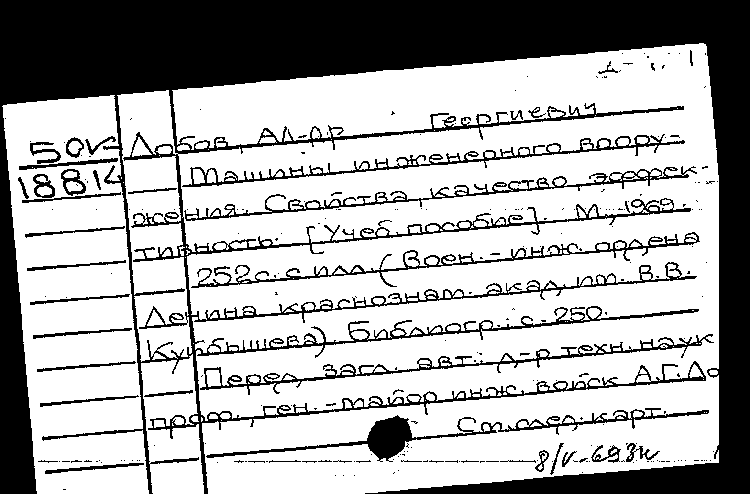 50к Лобов, Ал-др Георгиевич
18814 Машины инженерного воору-
жения. Свойства, качество, эффек-
тивность. [Учеб. пособие]. М., 1969.
252с. с илл. (Воен.-инж. ордена
Ленина краснознам. акад. им. В.В.
Куйбышева). Библиогр.: с. 250.
Перед загл. авт.: д-р техн. наук
проф., ген.-майор инж. войск А.Г. Ло
См. след. карт.